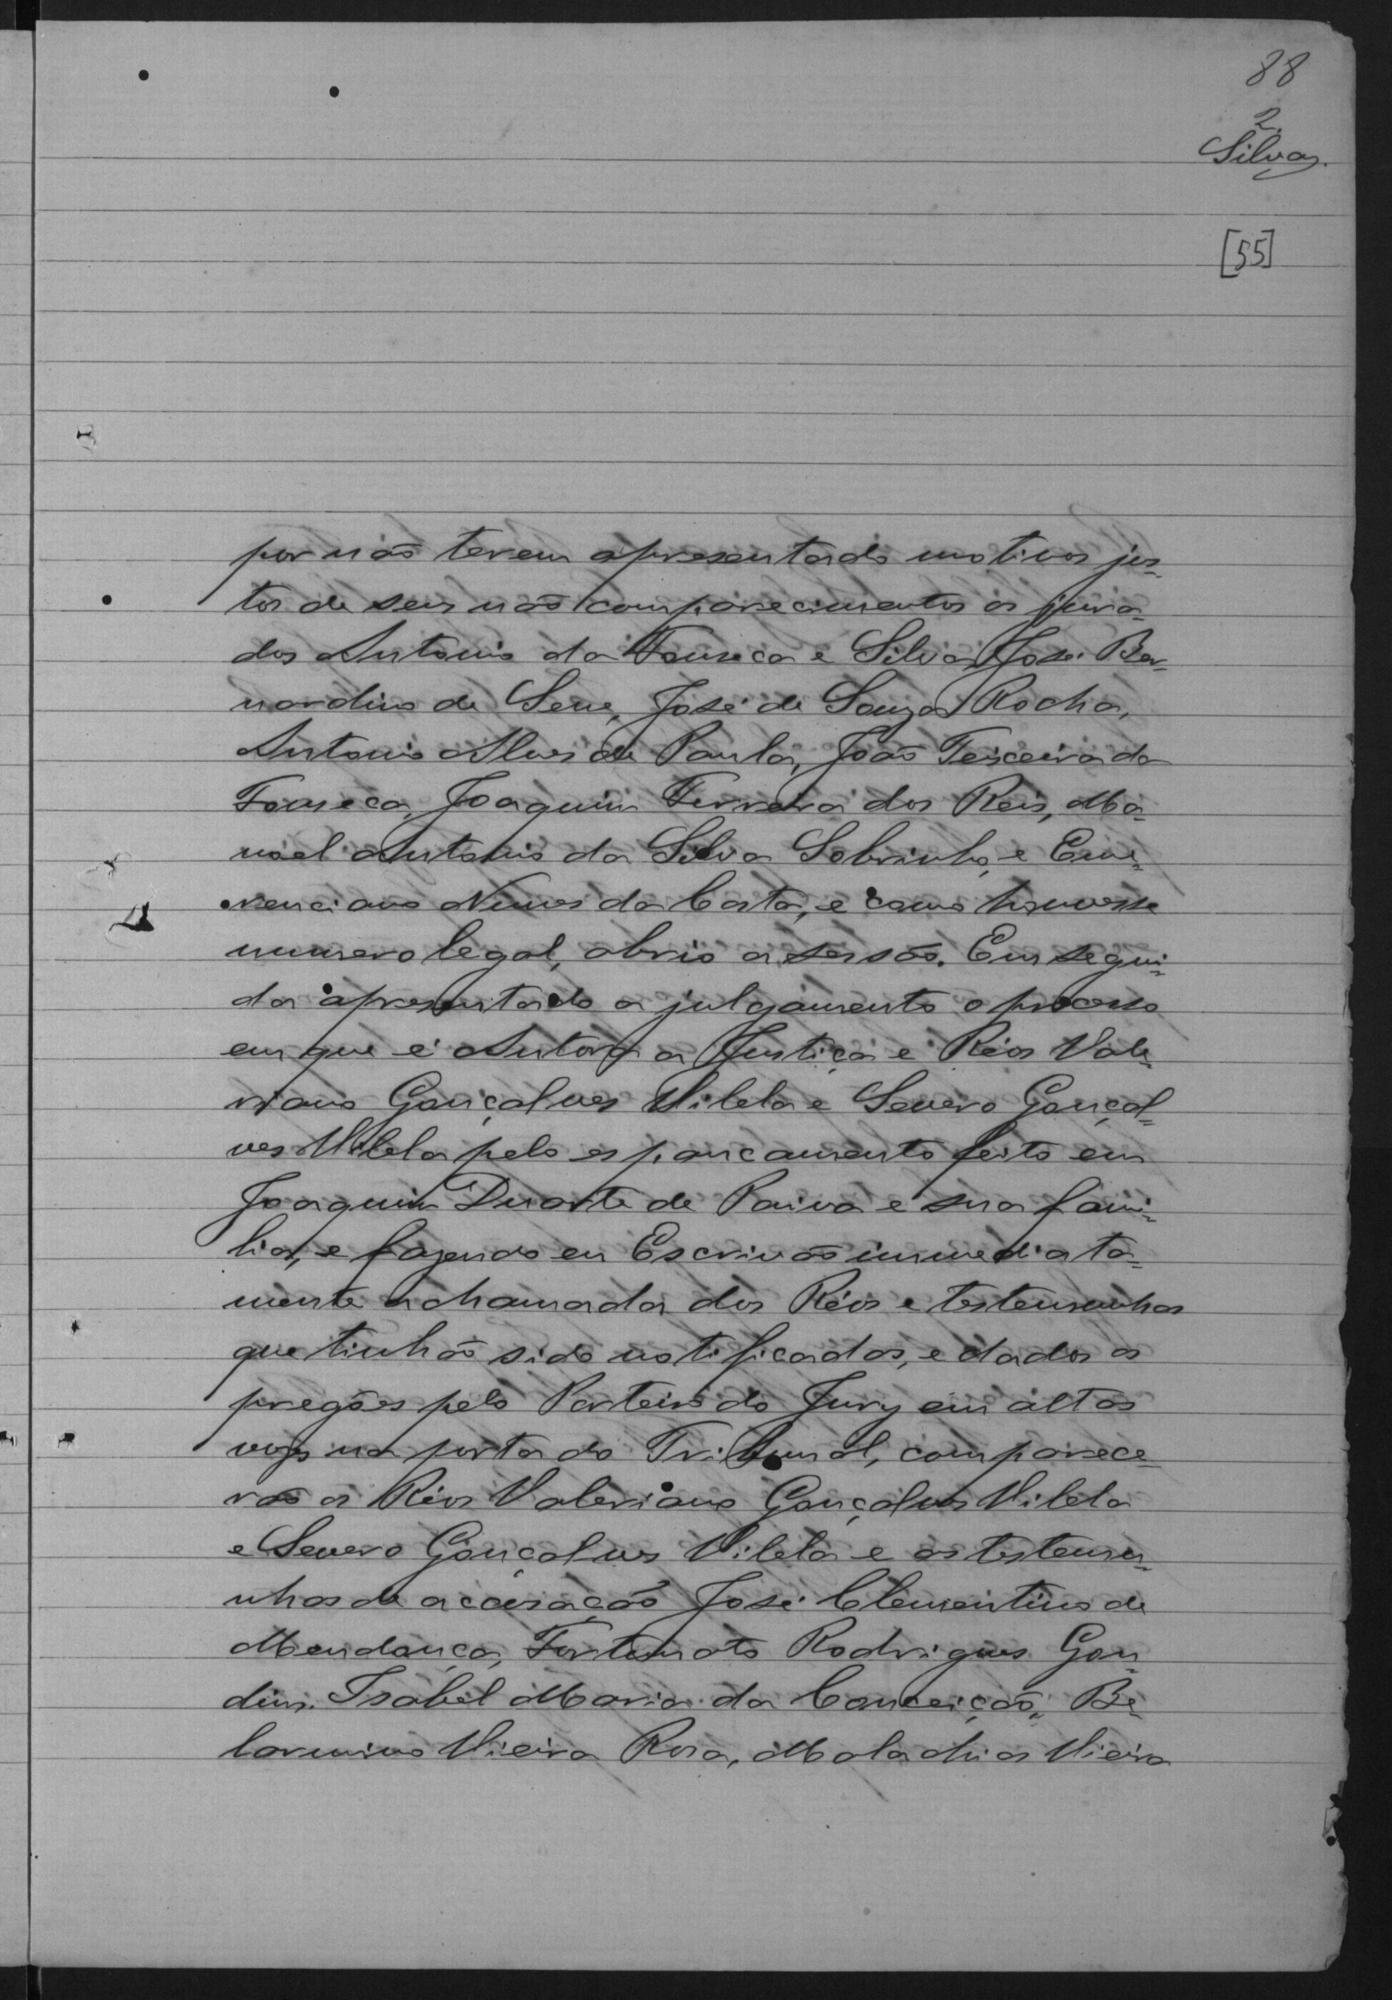 88
2.
Silva.
[55]
por não terem apresentado motivos jus-
tos de seus não comparecimentos os jura-
dos Antonio da Fonseca e Silva, José Ber-
nardino de Sene, José de Souza Rocha,
Antonio Alves de Paula, João Teixeira da
Fonseca, Joaquim Ferreira dos Reis, Ma-
noel Antonio da Silva Sobrinho, e Eme-
renciano Nunes da Costa, e como houvesse
numero legal, abrio a sessão. Em segui-
da apresentado a julgamento o processo
em que é Autora a Justiça e Réos Vale-
riano Gonçalves Vilela e Severo Gonçal-
ves Vilela pelo espancamento feito em
Joaquim Duarte de Paiva e sua fami-
lia, e fazendo eu Escrivão immediata-
mente a chamada dos Réos e testemunhas
que tinhão sido notificados, e dados os
pregões pelo Porteiro do Jury em altas
vozes na porta do Tribunal, comparece-
rão os Réos Valeriano Gonçalves Vilela
e Severo Gonçalves Vilela e as testemu-
nhas de accusação José Clementino de
Mendonça, Fortunato Rodrigues Gon-
dim, Isabel Maria da Conceição, Be-
larmino Vieira Rosa, Malachias Vieira